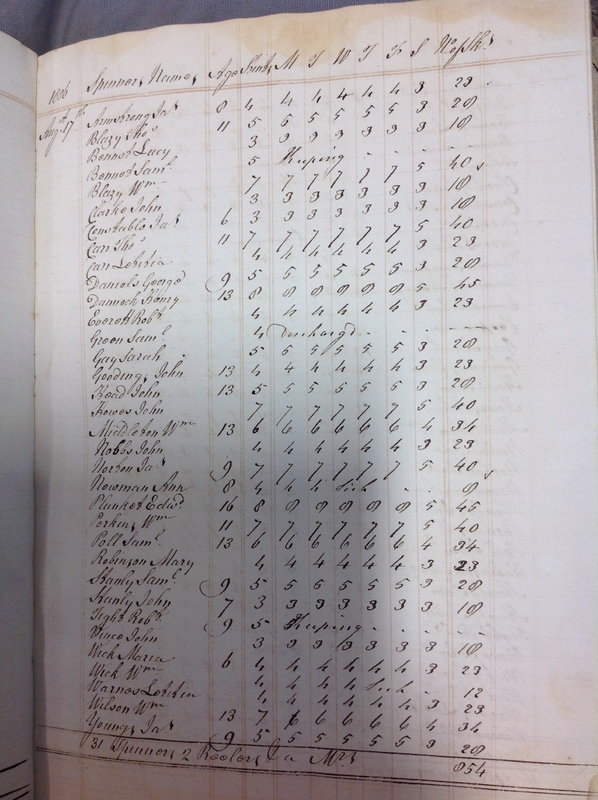 1806 Spinners Names Age Stint M T W T F S No of Sks
Augt 17th Armstrong Jas 8 4 4 4 4 4 4 3 23
Blazy Thos 11 5 5 5 5 5 5 3 28
Bennet Lucy 3 3 3 3 3 3 3 18
Bennet Saml 5 Keeping - - - -
Blazy Wm 7 7 7 7 7 7 5 40
Clarke John 3 3 3 3 3 3 3 18
Constable Jas 6 3 3 3 3 3 3 3 18
Carr Thos 11 7 7 7 7 7 7 5 40
Carr Letitia 4 4 4 4 4 4 3 23
Daniels George 9 5 5 5 5 5 5 3 28
Dannock Henry 13 8 8 8 8 8 8 5 45
Everett Robt 4 4 4 4 4 4 3 23
Green Saml 4 discharged - - - -
Gay Sarah 5 5 5 5 5 5 3 28
Gooding John 13 4 4 4 4 4 4 3 23
Head John 13 5 5 5 5 5 5 3 28
Howes John 7 7 7 7 7 7 5 40
Middleton Wm 13 6 6 6 6 6 6 4 34
Nobbs John 4 4 4 4 4 4 3 23
Norton Jas 9 7 7 7 7 7 7 5 40
Newman Ann 8 4 4 4 Sick - - 9
Plunket Edwd 16 8 8 8 8 8 8 5 45
Perkins Wm 11 7 7 7 7 7 7 5 40
Poll Saml 13 6 6 6 6 6 6 4 34
Robinson Mary 4 4 4 4 4 4 3 23
Stanly Saml 9 5 5 5 5 5 5 3 28
Stanly John 7 3 3 3 3 3 3 3 18
Tight Robt 9 5 Keeping - - - -
Vince John 3 3 3 3 3 3 3 18
Wick Maria 6 4 4 4 4 4 4 3 23
Wick Wm 4 4 4 4 Sick - 12
Warnes Letitia 4 4 4 4 4 4 3 23
Wilson Wm 13 7 6 6 6 6 6 4 34
Young Jas 9 5 5 5 5 5 5 3 28
31 Spinners 2 Reelers 854